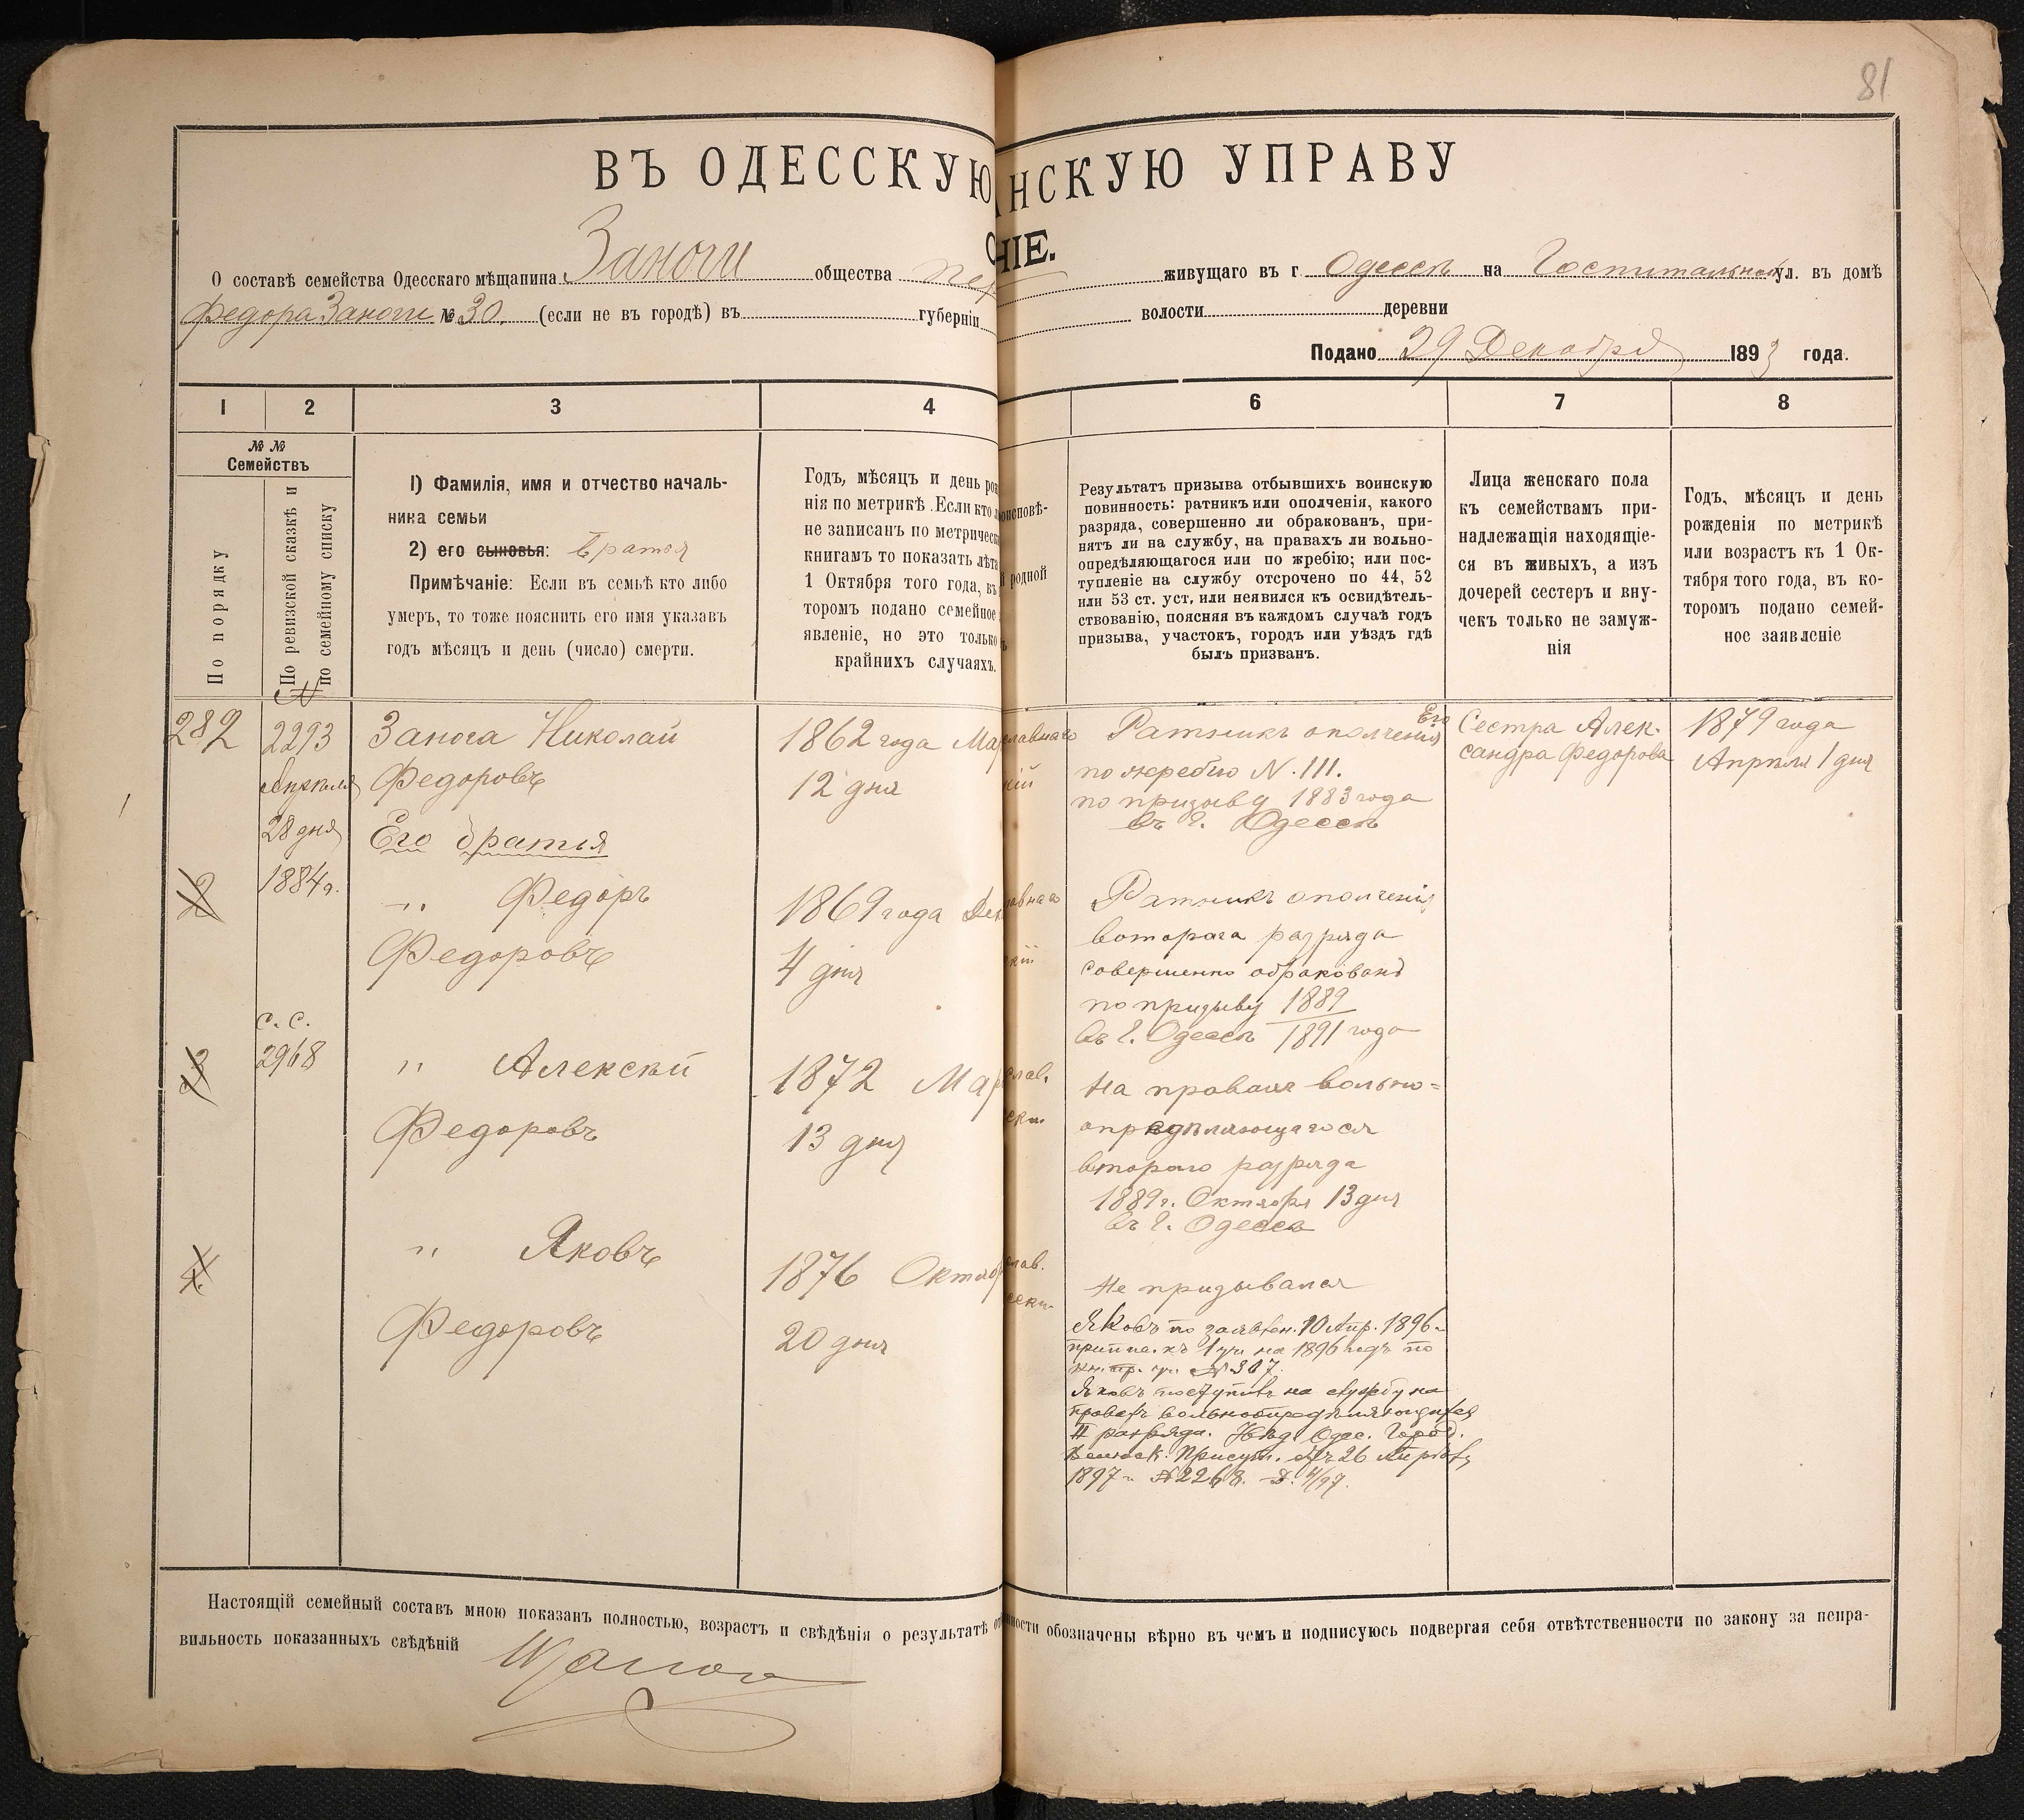 81
ВЪ ОДЕССКУЮ
НСКУЮ УПРАВУ
НІЕ.
О составѣ семейства Одесскаго мѣщанина Заноги общества
живущаго въ г Одессѣ на Госпитальной ул. въ домѣ
Федора Заноги № 30. (если не въ городѣ) въ губерніи
волости деревни
Подано 29 Декабря 1893 года.
1 2 3 4 6 7 8
№ №
Семействъ
По порядку
По ревизской сказкѣ и
по семейному списку
1) Фамилія, имя и отчество началь-
ника семьи
2) его сыновья: братья
Примѣчаніе: Если въ семьѣ кто либо
умеръ, то тоже пояснить его имя указавъ
годъ мѣсяцъ и день (число) смерти.
Годъ, мѣсяцъ и день рож
нія по метрикѣ. Если кто л
не записанъ по метрическ
книгамъ то показать лѣта
1 Октября того года, въ
торомъ подано семейное з
явленіе, но это только
крайнихъ случаяхъ.
оисповѣ-
й родной
Результатъ призыва отбывшихъ воинскую
повинность: ратникъ или ополченія, какого
разряда, совершенно ли обракованъ, при-
нятъ ли на службу, на правахъ ли вольно-
опредѣляющагося или по жребію; или пос-
тупленіе на службу отсрочено по 44, 52
или 53 ст. уст, или неявился къ освидѣтель-
ствованію, поясняя въ каждомъ случаѣ годъ
призыва, участокъ, городъ или уѣздъ гдѣ
былъ призванъ.
Лица женскаго пола
къ семействамъ при-
надлежащія находящіе-
ся въ живыхъ, а изъ
дочерей сестеръ и вну-
чекъ только не замуж-
нія
Годъ, мѣсяцъ и день
рожденія по метрикѣ
или возрастъ къ 1 Ок-
тября того года, въ ко-
торомъ подано семей-
ное заявленіе
282
№
2293
Апреля
28 дня
1884 г.
Заногa Николай
Федоровъ
1862 года Мар
12 дня
славнаго
кій
Ратникъ ополченія
по жребію N. 111.
по призыву 1883 года
въ г. Одессѣ
Его Сестра Алек-
сандра Федорова
1879 года
Апреля 1 дня
Его братья
2
" Федоръ
Федоровъ
1869 года Дек
4 дня
Ратникъ ополченія
второго разряда
совершенно обракованъ
по призыву 1889
въ г. Одессѣ 1891 года
3
с. с.
2968
" Алексѣй
Федоровъ
1872 Мар
13 дня
слав.
На правахъ вольно=
опредѣляющагося
второго разряда
1889 г. Октября 13 дня
въ г. Одессѣ
4
" Яковъ
Федоровъ
1876 Октяб
20 дня
слав.
Не призывался
Яковъ по заявлен. 10 Апр. 1896 г.
припис. къ 1 уч. на 1896 годъ по
кн. пр. уч. № 307.
Яковъ поступилъ на службу на
правахъ вольноопредѣляющагося
II разряда. Увѣд. Одес. Город.
Воинск. Присут. отъ 26 Апрѣля
1897 г. № 2268.
Настоящій семейный составъ мною показанъ полностью, возрастъ и свѣдѣнія о результатѣ от
нности обозначены вѣрно въ чемъ и подписуюсь подвергая себя отвѣтственности по закону за непра-
вильность показанныхъ свѣдѣній
Н Заногa